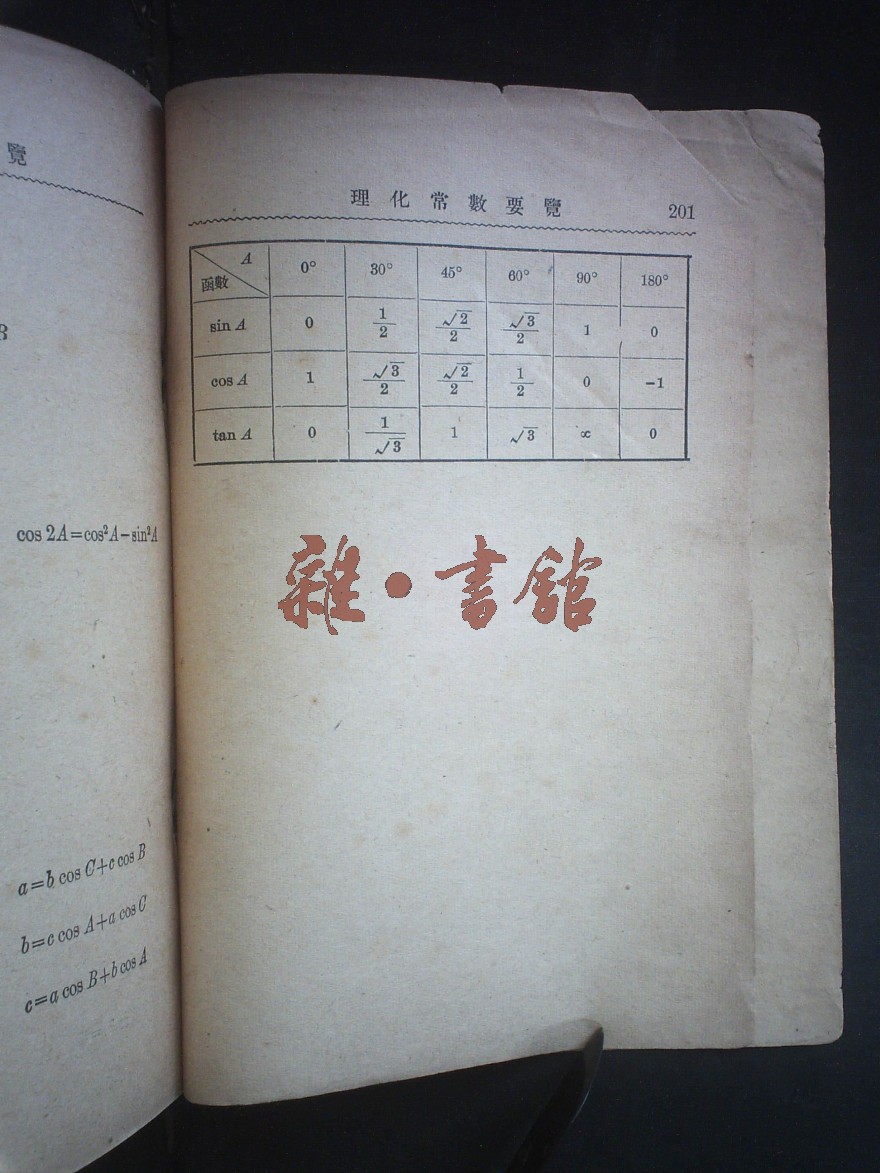 覽
B
cos 2A=cos²A−sin²A
a=b cos C+c cos B
b=c cos A+a cos C
c=a cos B+b cos A
理化常數要覽 201
A 函數 0° 30° 45° 60° 90° 180°
sin A 0 1/2 √2/2 √3/2 1 0
cos A 1 √3/2 √2/2 1/2 0 −1
tan A 0 1/√3 1 √3 ∝ 0
雜·書館